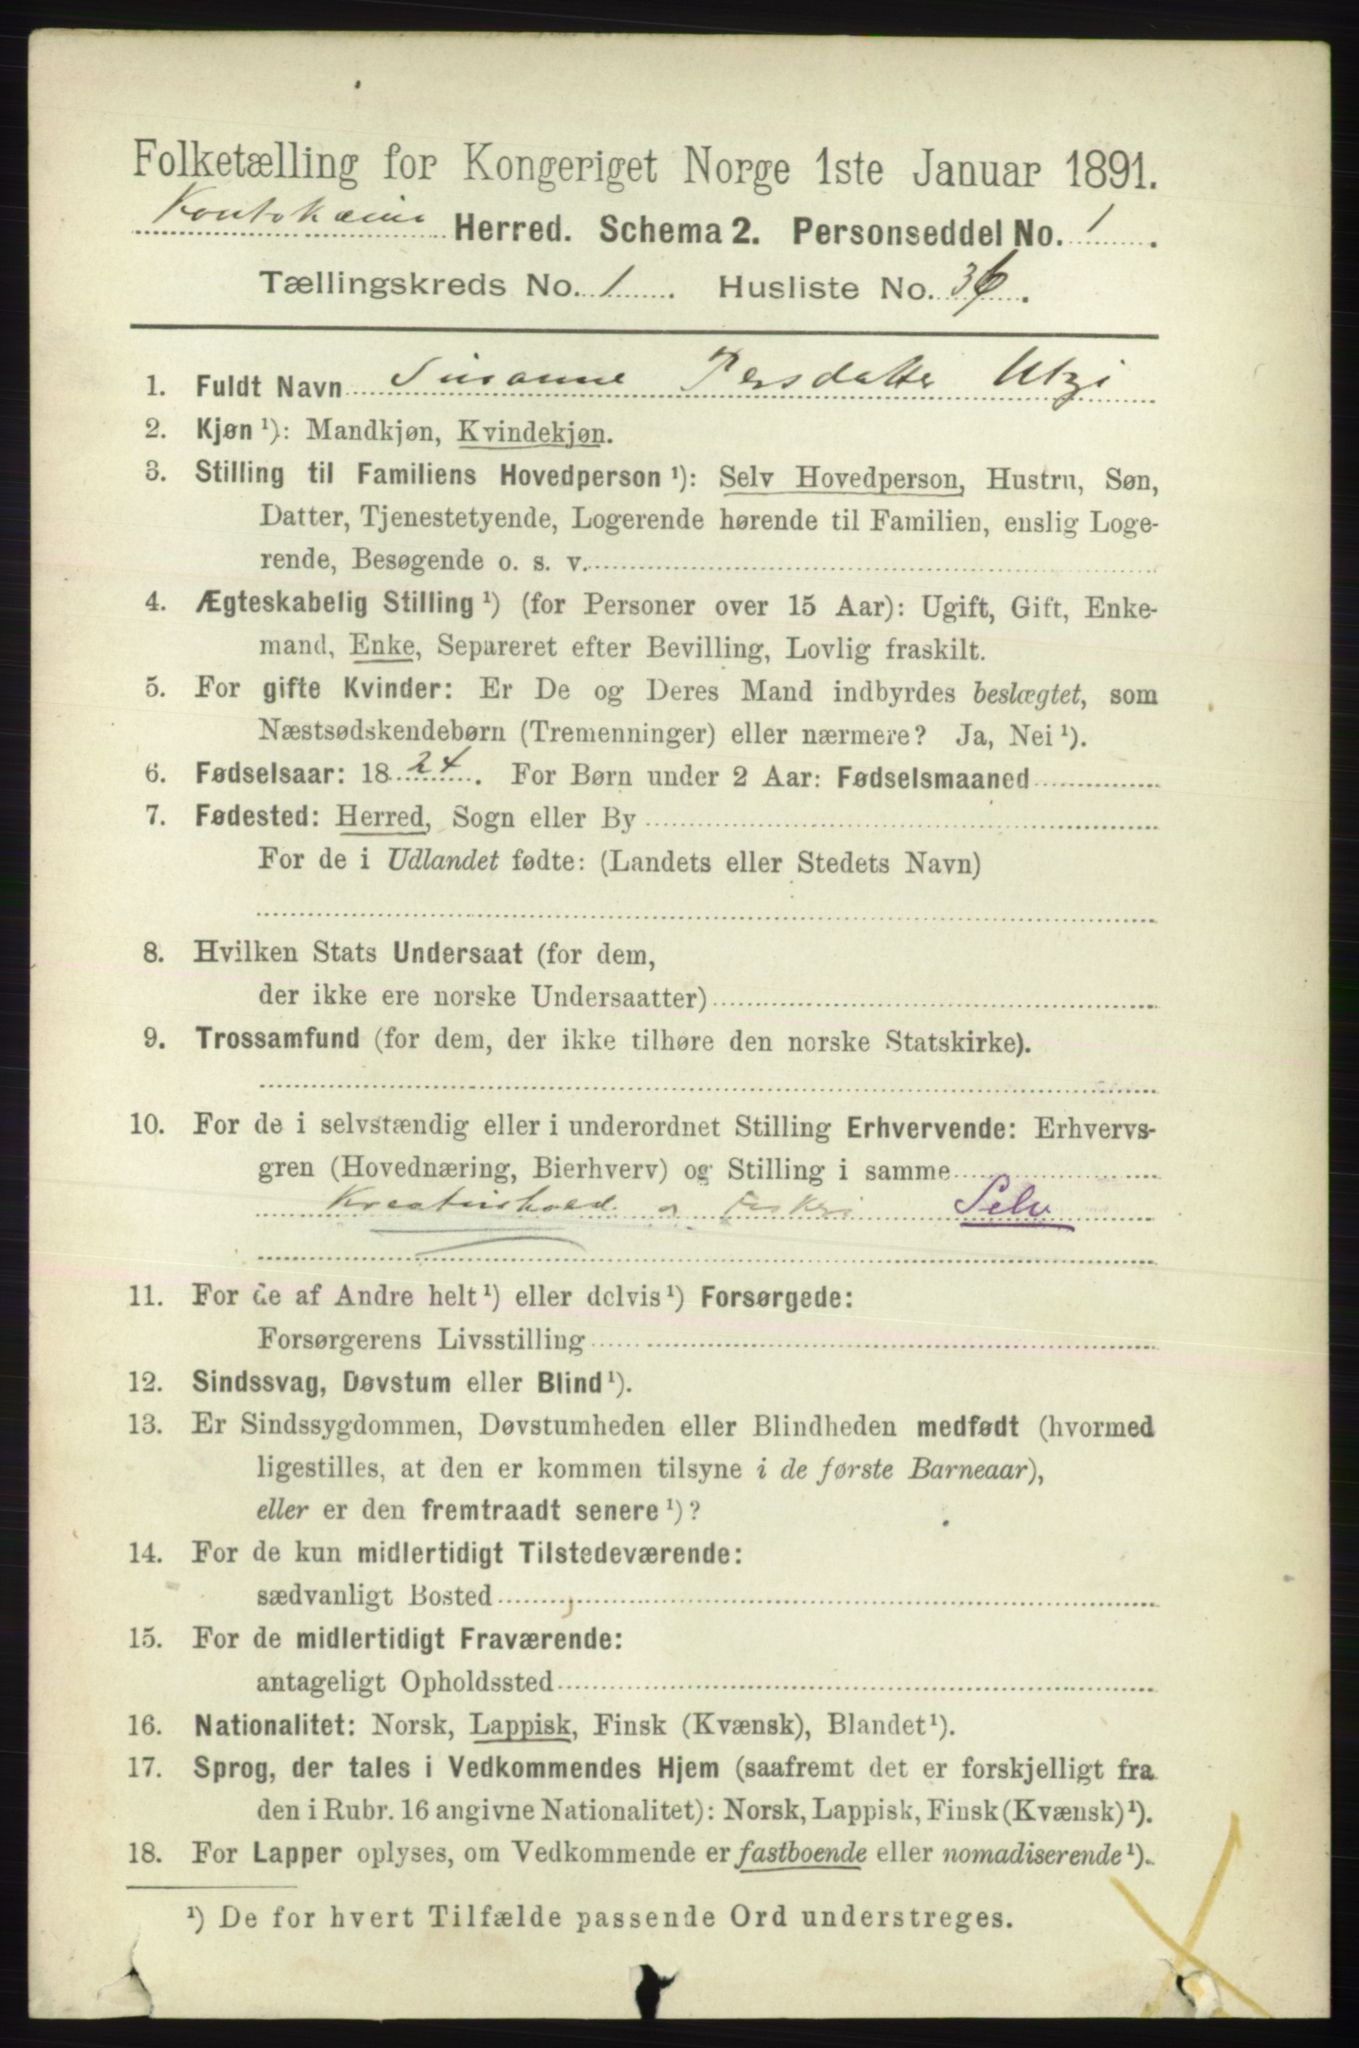 Folketælling for Kongeriget Norge 1ste Januar 1891.
Kontokæino Herred. Schema 2. Personseddel No. 1.
Tællingskreds No. 1. Husliste No. 36.
1. Fuldt Navn Susanne Persdatter Utzi
2. Kjøn ¹): Mandkjøn, Kvindekjøn.
3. Stilling til Familiens Hovedperson ¹): Selv Hovedperson, Hustru, Søn,
Datter, Tjenestetyende, Logerende hørende til Familien, enslig Loge-
rende, Besøgende o. s. v.
4. Ægteskabelig Stilling ¹) (for Personer over 15 Aar): Ugift, Gift, Enke-
mand, Enke, Separeret efter Bevilling, Lovlig fraskilt.
5. For gifte Kvinder: Er De og Deres Mand indbyrdes beslægtet, som
Næstsødskendebørn (Tremenninger) eller nærmere? Ja, Nei ¹).
6. Fødselsaar: 1824. For Børn under 2 Aar: Fødselsmaaned
7. Fødested: Herred, Sogn eller By
For de i Udlandet fødte: (Landets eller Stedets Navn)
8. Hvilken Stats Undersaat (for dem,
der ikke ere norske Undersaatter)
9. Trossamfund (for dem, der ikke tilhøre den norske Statskirke).
10. For de i selvstændig eller i underordnet Stilling Erhvervende: Erhvervs-
gren (Hovednæring, Bierhverv) og Stilling i samme
Kreaturhold og Fiskeri Selv
11. For de af Andre helt ¹) eller delvis ¹) Forsørgede:
Forsørgerens Livsstilling
12. Sindssvag, Døvstum eller Blind ¹).
13. Er Sindssygdommen, Døvstumheden eller Blindheden medfødt (hvormed
ligestilles, at den er kommen tilsyne i de første Barneaar),
eller er den fremtraadt senere ¹)?
14. For de kun midlertidigt Tilstedeværende:
sædvanligt Bosted
15. For de midlertidigt Fraværende:
antageligt Opholdssted
16. Nationalitet: Norsk, Lappisk, Finsk (Kvænsk), Blandet ¹).
17. Sprog, der tales i Vedkommendes Hjem (saafremt det er forskjelligt fra
den i Rubr. 16 angivne Nationalitet): Norsk, Lappisk, Finsk (Kvænsk) ¹).
18. For Lapper oplyses, om Vedkommende er fastboende eller nomadiserende ¹).
¹) De for hvert Tilfælde passende Ord understreges.